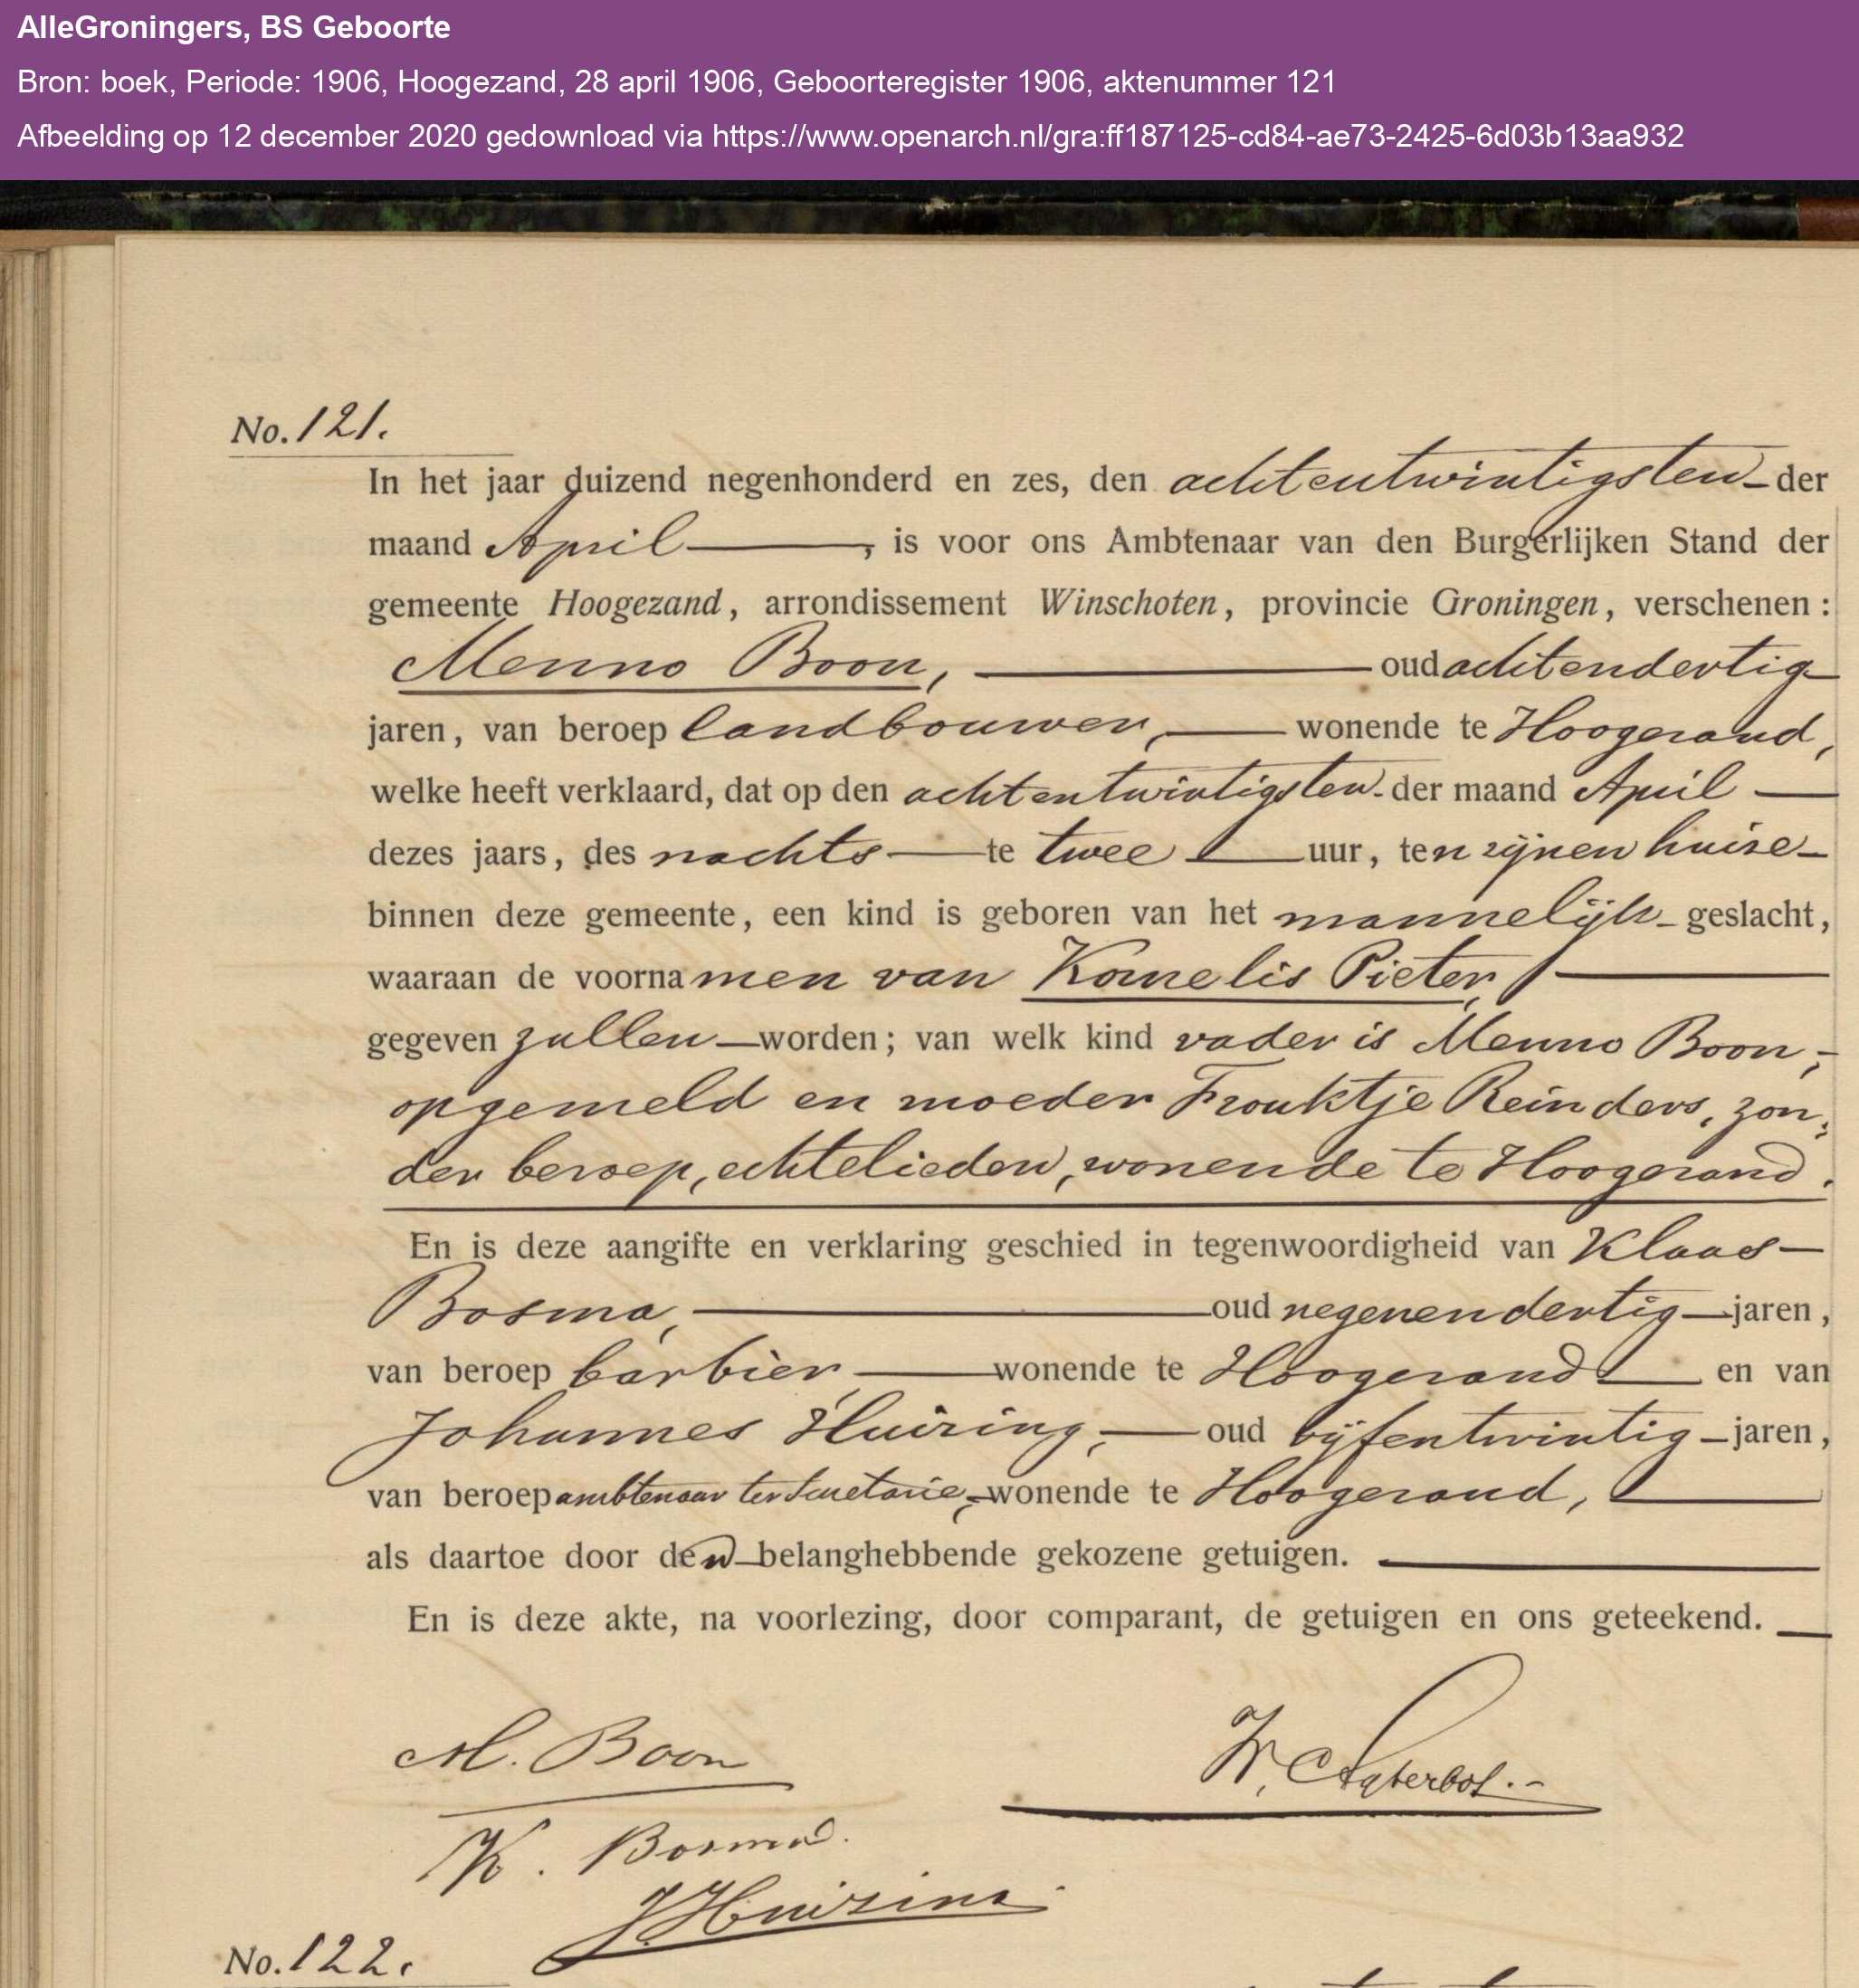 AlleGroningers, BS Geboorte
Bron: boek, Periode: 1906, Hoogezand, 28 april 1906, Geboorteregister 1906, aktenummer 121
Afbeelding op 12 december 2020 gedownload via https://www.openarch.nl/gra:ff187125-cd84-ae73-2425-6d03b13aa932
No. 121.
In het jaar duizend negenhonderd en zes, den achtentwintigsten der
maand April, is voor ons Ambtenaar van den Burgerlijken Stand der
gemeente Hoogezand, arrondissement Winschoten, provincie Groningen, verschenen:
Menno Boon, oud achtendertig
jaren, van beroep landbouwer, wonende te Hoogezand,
welke heeft verklaard, dat op den achtentwintigsten der maand April
dezes jaars, des nachts te twee uur, ten zijnen huize
binnen deze gemeente, een kind is geboren van het mannelijk geslacht,
waaraan de voornamen van Kornelis Pieter,
gegeven zullen worden; van welk kind vader is Menno Boon,
opgemeld en moeder Frouktje Reinders, zon-
der beroep, echtelieden, wonende te Hoogezand.
En is deze aangifte en verklaring geschied in tegenwoordigheid van Klaas
Bosma, oud negenendertig jaren,
van beroep barbier, wonende te Hoogezand en van
Johannes Huizing, oud vijfentwintig jaren,
van beroep ambtenaar ter secretarie, wonende te Hoogezand,
als daartoe door den belanghebbende gekozene getuigen.
En is deze akte, na voorlezing, door comparant, de getuigen en ons geteekend.
M. Boon
K. Bosma.
J Huizing
No. 122.